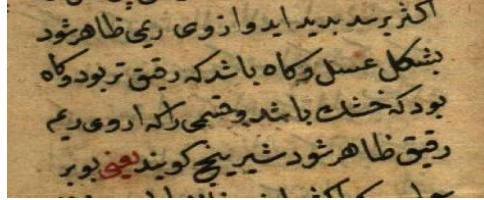 اکثر برسد بدید اید و ازوی ریمی ظاهر شود
بشکل عسل و کاه باشد که رقیق تر بود و کاه
بود که خشک باشد و قسمی را که ازوی ریم
رقیق ظاهر شود شیرینج کویند یعنی بوبر